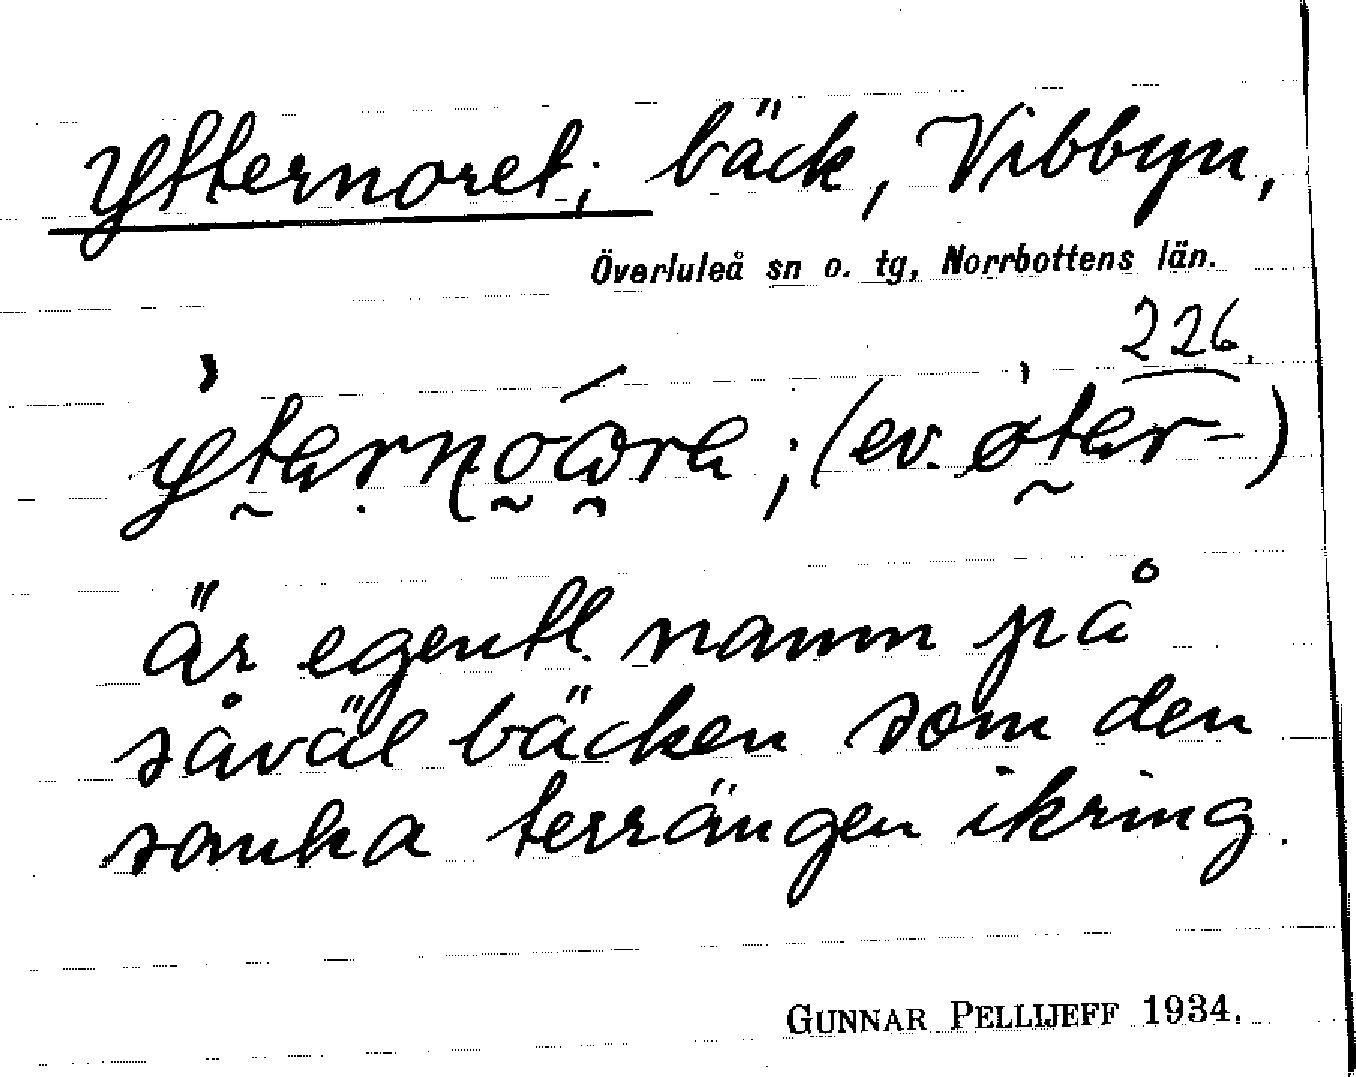 Ytternoret; bäck, Vibbyn,
Överluleå sn o. tg, Norrbottens län.
226.
(ev. øtər-)
är egentl. namn på
såväl bäcken som den
sanka terrängen ikring.
GUNNAR PELLIJEFF 1934.